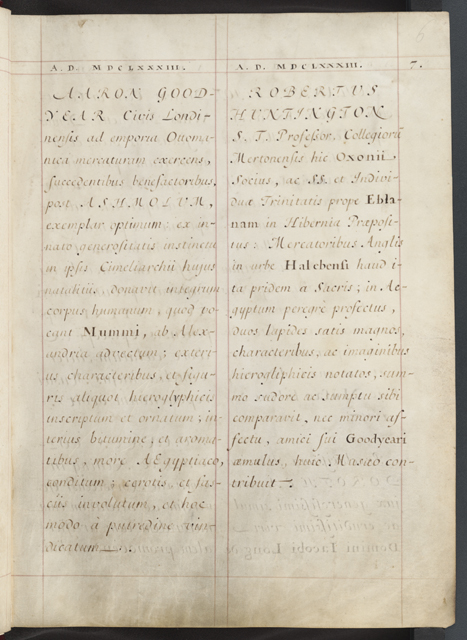 6
A. D. MDCLXXXIII.
AARON GOOD-
YEAR Civis Londi-
nensis ad emporia Ottoma-
nica mercaturam exercens,
succedentibus benefactoribus,
post ASHMOLVM,
exemplar optimum; ex in-
nato generositatis instinctu
in ipsis Cimeliarchii hujus
natalitiis, donavit integrum
corpus humanum, quod vo-
cant Mummi, ab Alex-
andria advectum; exteri-
us characteribus, et figu-
ris aliquot hieroglyphicis
inscriptum et ornatum; in-
terius bitumine, et aroma-
tibus, more AEgyptiaco,
conditum; cerotis et fas-
ciis involutum, et hoc
modo à putredine vin-
dicatum
A. D. MDCLXXXIII. 7.
ROBERTVS
HUNTINGTON
S. T. Professor Collegiorū
Mertonensis hic Oxonii,
Socius, ac SS. et Indivi-
duæ Trinitatis prope Ebla-
nam in Hibernia Præposi-
tus; Mercatoribus Anglis
in urbe Halebensi haud i-
ta pridem à Sacris; in Ae-
gyptum peregrè profectus,
duos lapides satis magnos,
characteribus, ac imaginibus
hierogliphicis notatos, sum-
mo sudore ac sumptu sibi
comparavit, nec minori af-
fectu, amici sui Goodyeari
æmulus, huic Musæo con-
tribuit